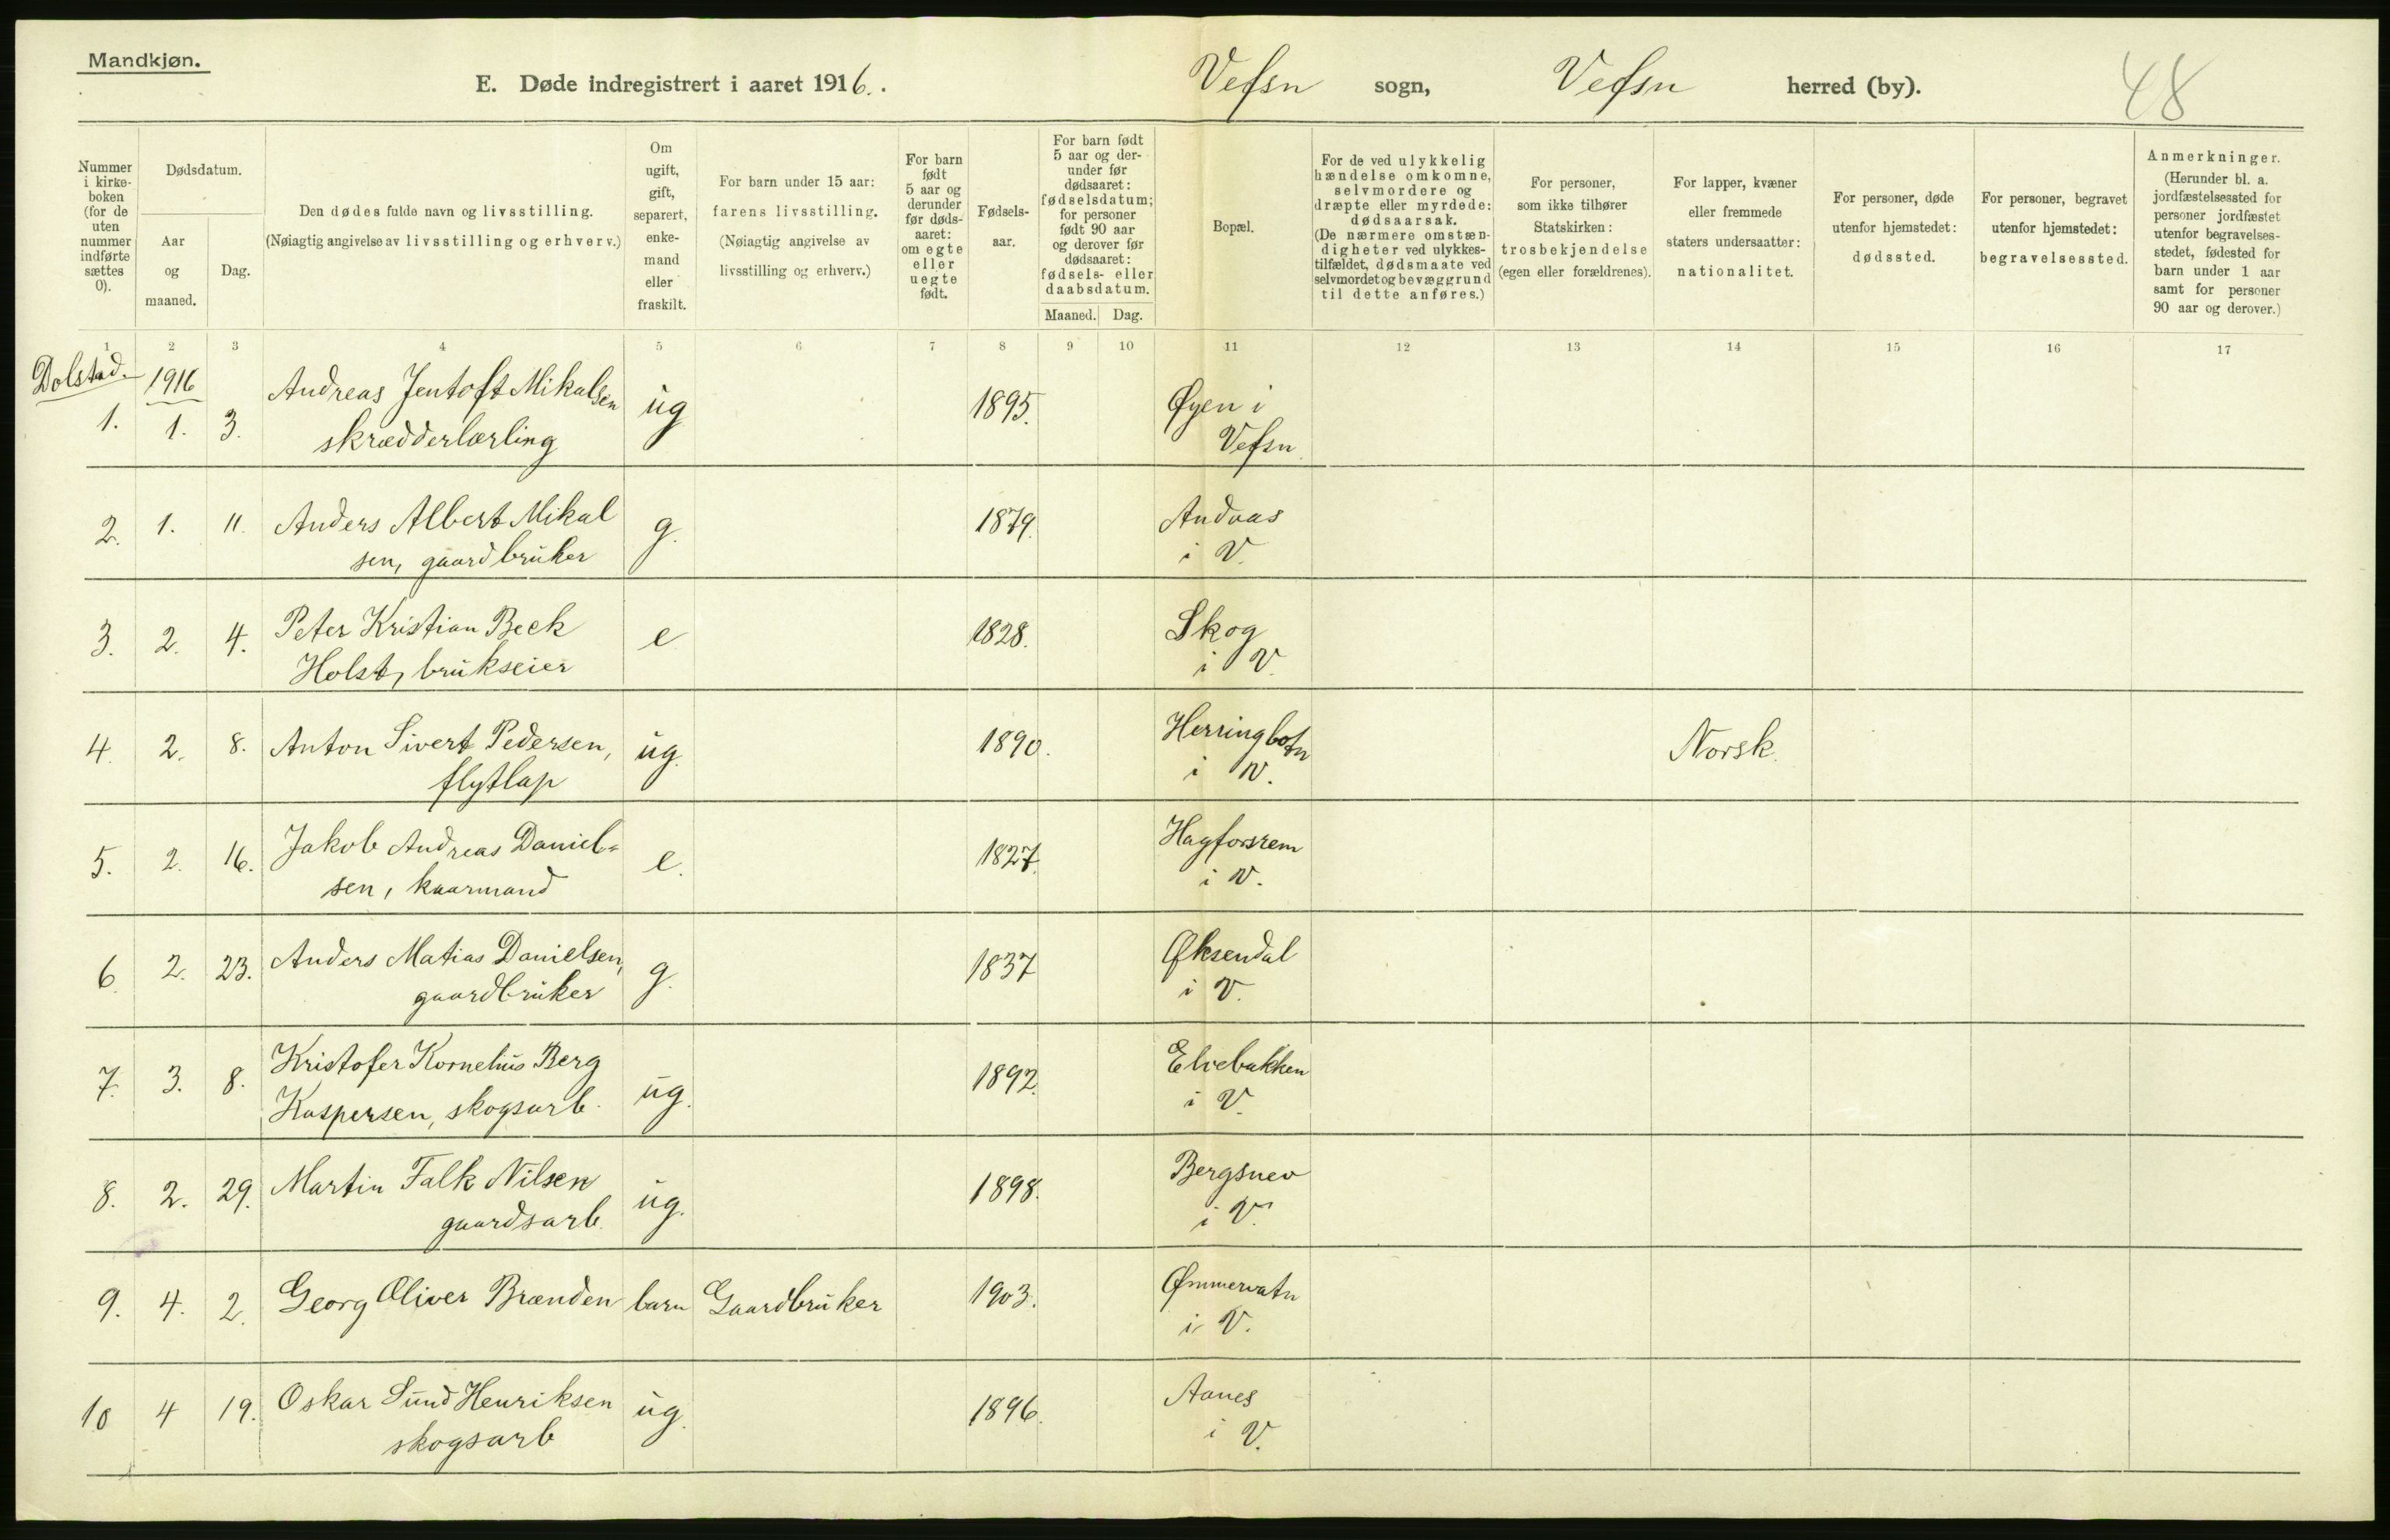 Mandkjøn.
E. Døde indregistrert i aaret 1916. Vefsn sogn, Vefsn herred (by). 48
Nummer i kirke- boken (for de uten nummer indførte sættes 0).
Dødsdatum.
Aar og maaned.
Dag.
Den dødes fulde navn og livsstilling.
(Nøiagtig angivelse av livsstilling og erhverv.)
Om ugift, gift, separert, enke- mand eller fraskilt.
For barn under 15 aar: farens livsstilling. (Nøiagtig angivelse av livsstilling og erhverv.)
For barn født 5 aar og derunder før døds- aaret: om egte eller uegte født.
Fødsels- aar.
For barn født 5 aar og der- under før dødsaaret: fødselsdatum; for personer født 90 aar og derover før dødsaaret: fødsels- eller daabsdatum.
Maaned. Dag.
Bopæl.
For de ved ulykkelig hændelse omkomne, selvmordere og dræpte eller myrdede: dødsaarsak. (De nærmere omstæn- digheter ved ulykkes- tilfældet, dødsmaate ved selvmordet og bevæggrund til dette anføres.)
For personer, som ikke tilhører Statskirken: trosbekjendelse (egen eller forældrenes).
For lapper, kvæner eller fremmede staters undersaatter: nationalitet.
For personer, døde utenfor hjemstedet: dødssted.
For personer, begravet utenfor hjemstedet: begravelsessted.
Anmerkninger. (Herunder bl. a. jordfæstelsessted for personer jordfæstet utenfor begravelses- stedet, fødested for barn under 1 aar samt for personer 90 aar og derover.)
1 2 3 4 5 6 7 8 9 10 11 12 13 14 15 16 17
Dolstad. 1916
1. 1. 3. Andreas Jentoft Mikalsen ug 1895. Øyen i
skrædderlærling Vefsn
2. 1. 11. Anders Albert Mikal g. 1879. Andaas
sen, gaardbruker i V.
3. 2. 4. Peter Kristian Beck e 1828. Skog
Holst, brukseier i V.
4. 2. 8. Anton Sivert Pedersen, ug. 1890. Herringbotn Norsk.
flytlap i V.
5. 2. 16. Jakob Andreas Daniel= e. 1827. Hagforsrem
sen, kaarmand i V.
6. 2. 23. Anders Matias Danielsen, g. 1837 Øksendal
gaardbruker i V.
7. 3. 8. Kristofer Kornelius Berg ug. 1892. Elvebakken
Kaspersen, skogsarb. i V.
8. 2. 29. Martin Falk Nilsen ug. 1898. Bergsnev
gaardsarb. i V.
9. 4. 2. Georg Oliver Brænden barn Gaardbruker 1903. Ømmervatn
i V.
10 4 19. Oskar Sund Henriksen ug. 1896. Aanes
skogsarb i V.